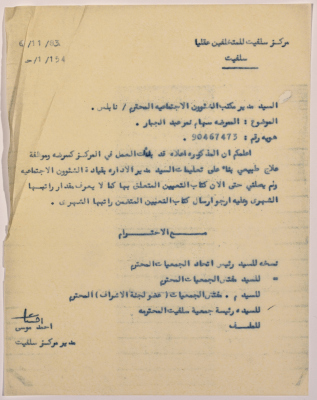 مركز سلفيت للمتخلفين عقليا
سلفيت
السيد مدير مكتب الشؤون الاجتماعيه المحترم / نابلس .
الموضوع : الممرضه سهام نمر عبد الجبار .
هويه رقم : 90467473 .
اعلمكم ان المذكوره اعلاه قد بدأت العمل في المركز كممرضه وموظفة
علاج طبيعي بناء على تعليمات السيد مدير الاداره بقيادة الشؤون الاجتماعيه
ولم يصلني حتى الان كتاب التعيين المتعلق بها كما لا يعرف مقدار راتبها
الشهرى وعليه ارجو ارسال كتاب التعيين المتضمن راتبها الشهرى .
مع الاحترام
نسخه للسيد رئيس اتحاد الجمعيات المحترم
= للسيد مفتش الجمعيات المحترم
للسيد م . مفتش الجمعيات ( عضو لجنة الاشراف ) المحترم
للسيده رئيسة جمعية سلفيت المحترمه
للملف
احمد موسى
مدير مركز سلفيت